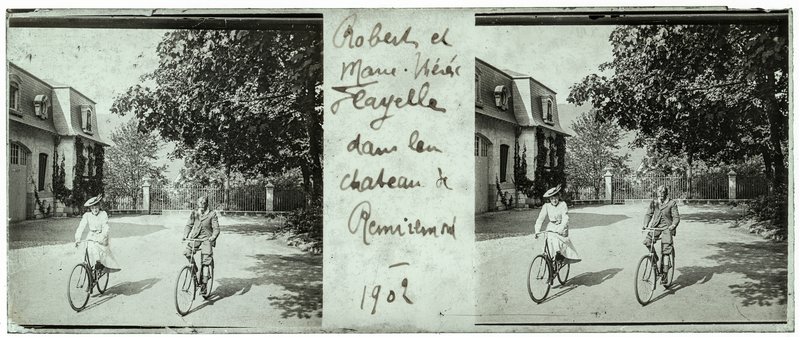 Robert et
Marie-Thérèse
Flayelle
dans leur
chateau de
Remiremont
1902